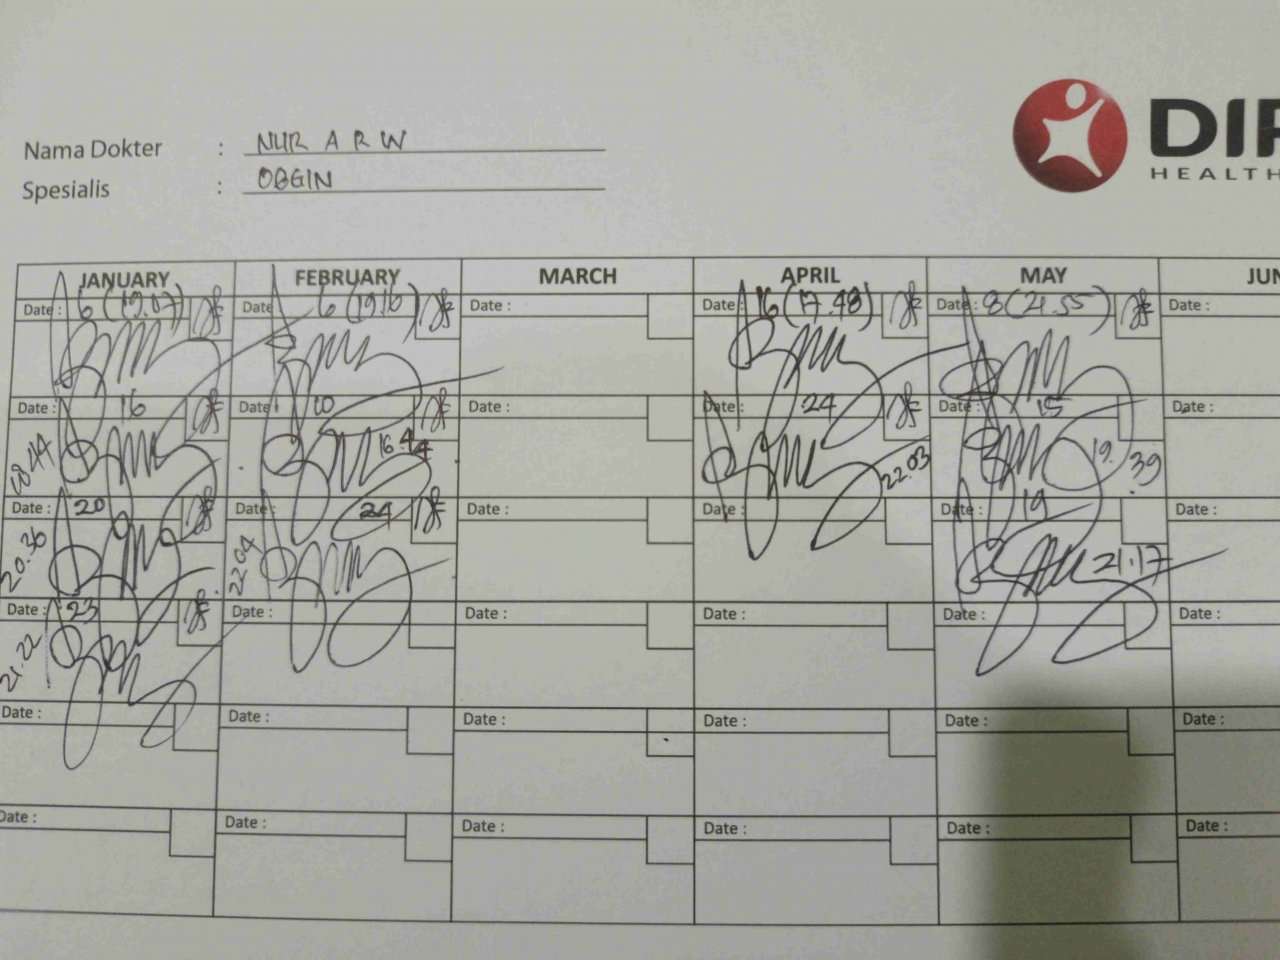 Nama Dokter : NUR A R W
Spesialis : OBGIN
DIP
HEALTH
JANUARY FEBRUARY MARCH APRIL MAY JUN
Date : 6 (19.07) Date : 6 (19.10) Date : Date : 16 (17.48) Date : 8 (21.55) Date :
Date : 16 Date : 10 Date : Date : 24 Date : 15 Date :
16.44 22.03 19.39
Date : 20 Date : 24 Date : Date : Date : 19 Date :
20.36 22.04 21.17
Date : 23 Date : Date : Date : Date : Date :
21.22
Date : Date : Date : Date : Date : Date :
Date : Date : Date : Date : Date : Date :